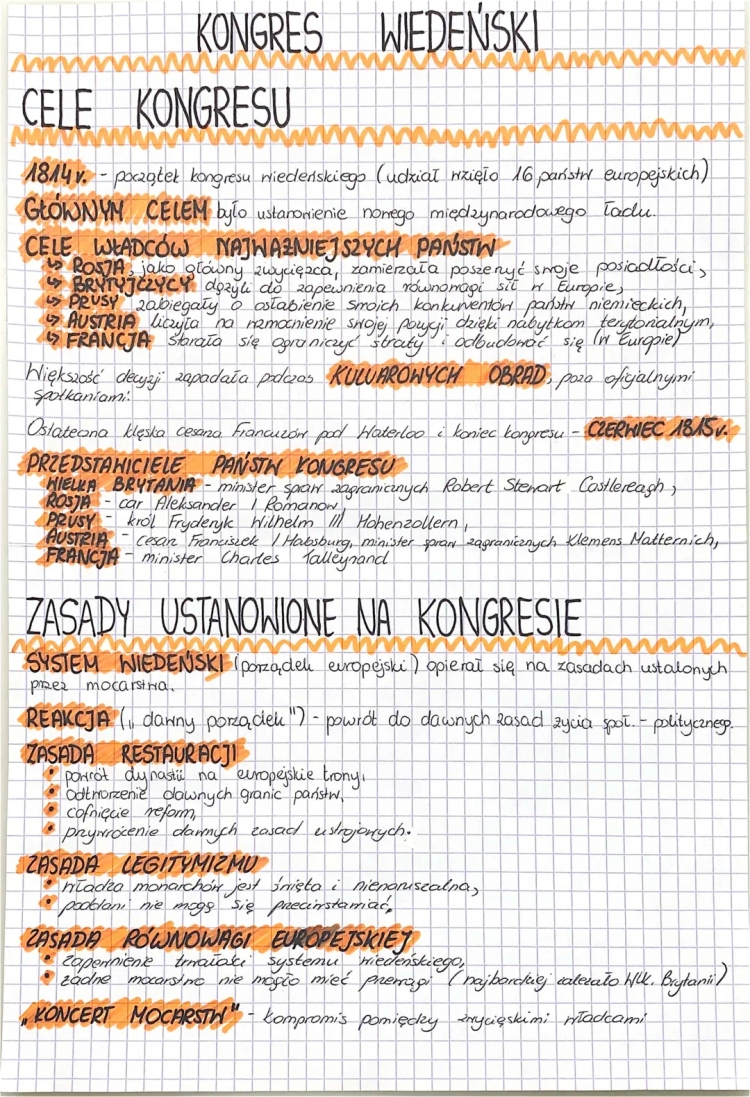 KONGRES WIEDEŃSKI
CELE KONGRESU
1814r. - początek kongresu wiedeńskiego (udział wzięło 16 państw europejskich)
GŁÓWNYM CELEM było ustanowienie nowego międzynarodowego ładu.
CELE WŁADCÓW NAJWAŻNIEJSZYCH PAŃSTW
↳ ROSJA, jako główny zwycięzca, zamierzała poszerzyć swoje posiadłości,
↳ BRYTYJCZYCY dążyli do zapewnienia równowagi sił w Europie,
↳ PRUSY zabiegały o osłabienie swoich konkurentów państw niemieckich,
↳ AUSTRIA liczyła na wzmocnienie swojej pozycji dzięki nabytkom terytorialnym,
↳ FRANCJA starała się ograniczyć straty i odbudować się (w Europie)
Większość decyzji zapadała podczas KULUAROWYCH OBRAD, poza oficjalnymi
spotkaniami.
Ostateczna klęska cesarza Francuzów pod Waterloo i koniec kongresu - CZERWIEC 1815r.
PRZEDSTAWICIELE PAŃSTW KONGRESU
WIELKA BRYTANIA - minister spraw zagranicznych Robert Stewart Castlereagh,
ROSJA - car Aleksander I Romanow,
PRUSY - król Fryderyk Wilhelm III Hohenzollern,
AUSTRIA - cesarz Franciszek I Habsburg, minister spraw zagranicznych Klemens Matternich,
FRANCJA - minister Charles Talleynand
ZASADY USTANOWIONE NA KONGRESIE
SYSTEM WIEDEŃSKI (porządek europejski) opierał się na zasadach ustalonych
przez mocarstwa.
REAKCJA („dawny porządek") - powrót do dawnych zasad życia społ. - politycznego.
ZASADA RESTAURACJI
• powrót dynastii na europejskie trony,
• odtworzenie dawnych granic państw,
• cofnięcie reform,
• przywrócenie dawnych zasad ustrojowych.
ZASADA LEGITYMIZMU
• władza monarchów jest święta i nienaruszalna,
• poddani nie mogą się przeciwstawiać.
ZASADA RÓWNOWAGI EUROPEJSKIEJ
• zapewnienie trwałości systemu wiedeńskiego,
• żadne mocarstwo nie mogło mieć przewagi (najbardziej zależało Wlk. Brytanii)
„KONCERT MOCARSTW" - kompromis pomiędzy zwycięskimi władcami